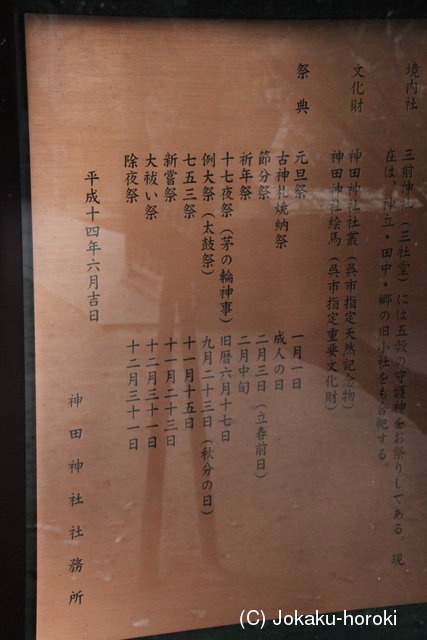 境内社　三前神社（三社堂）には五穀の守護神をお祭りしてある。現
在は、神立・田中・郷の旧小社をも合祀する。
文化財　神田神社社叢（呉市指定天然記念物）
神田神社絵馬（呉市指定重要文化財）
祭典　元旦祭　一月一日
古神札焼納祭　成人の日
節分祭　二月三日（立春前日）
祈年祭　二月中旬
十七夜祭（茅の輪神事）旧暦六月十七日
例大祭（太鼓祭）九月二十三日（秋分の日）
七五三祭　十一月十五日
新嘗祭　十一月二十三日
大祓い祭　十二月三十一日
除夜祭　十二月三十一日
平成十四年六月吉日
神田神社社務所
(C) Jokaku-horoki